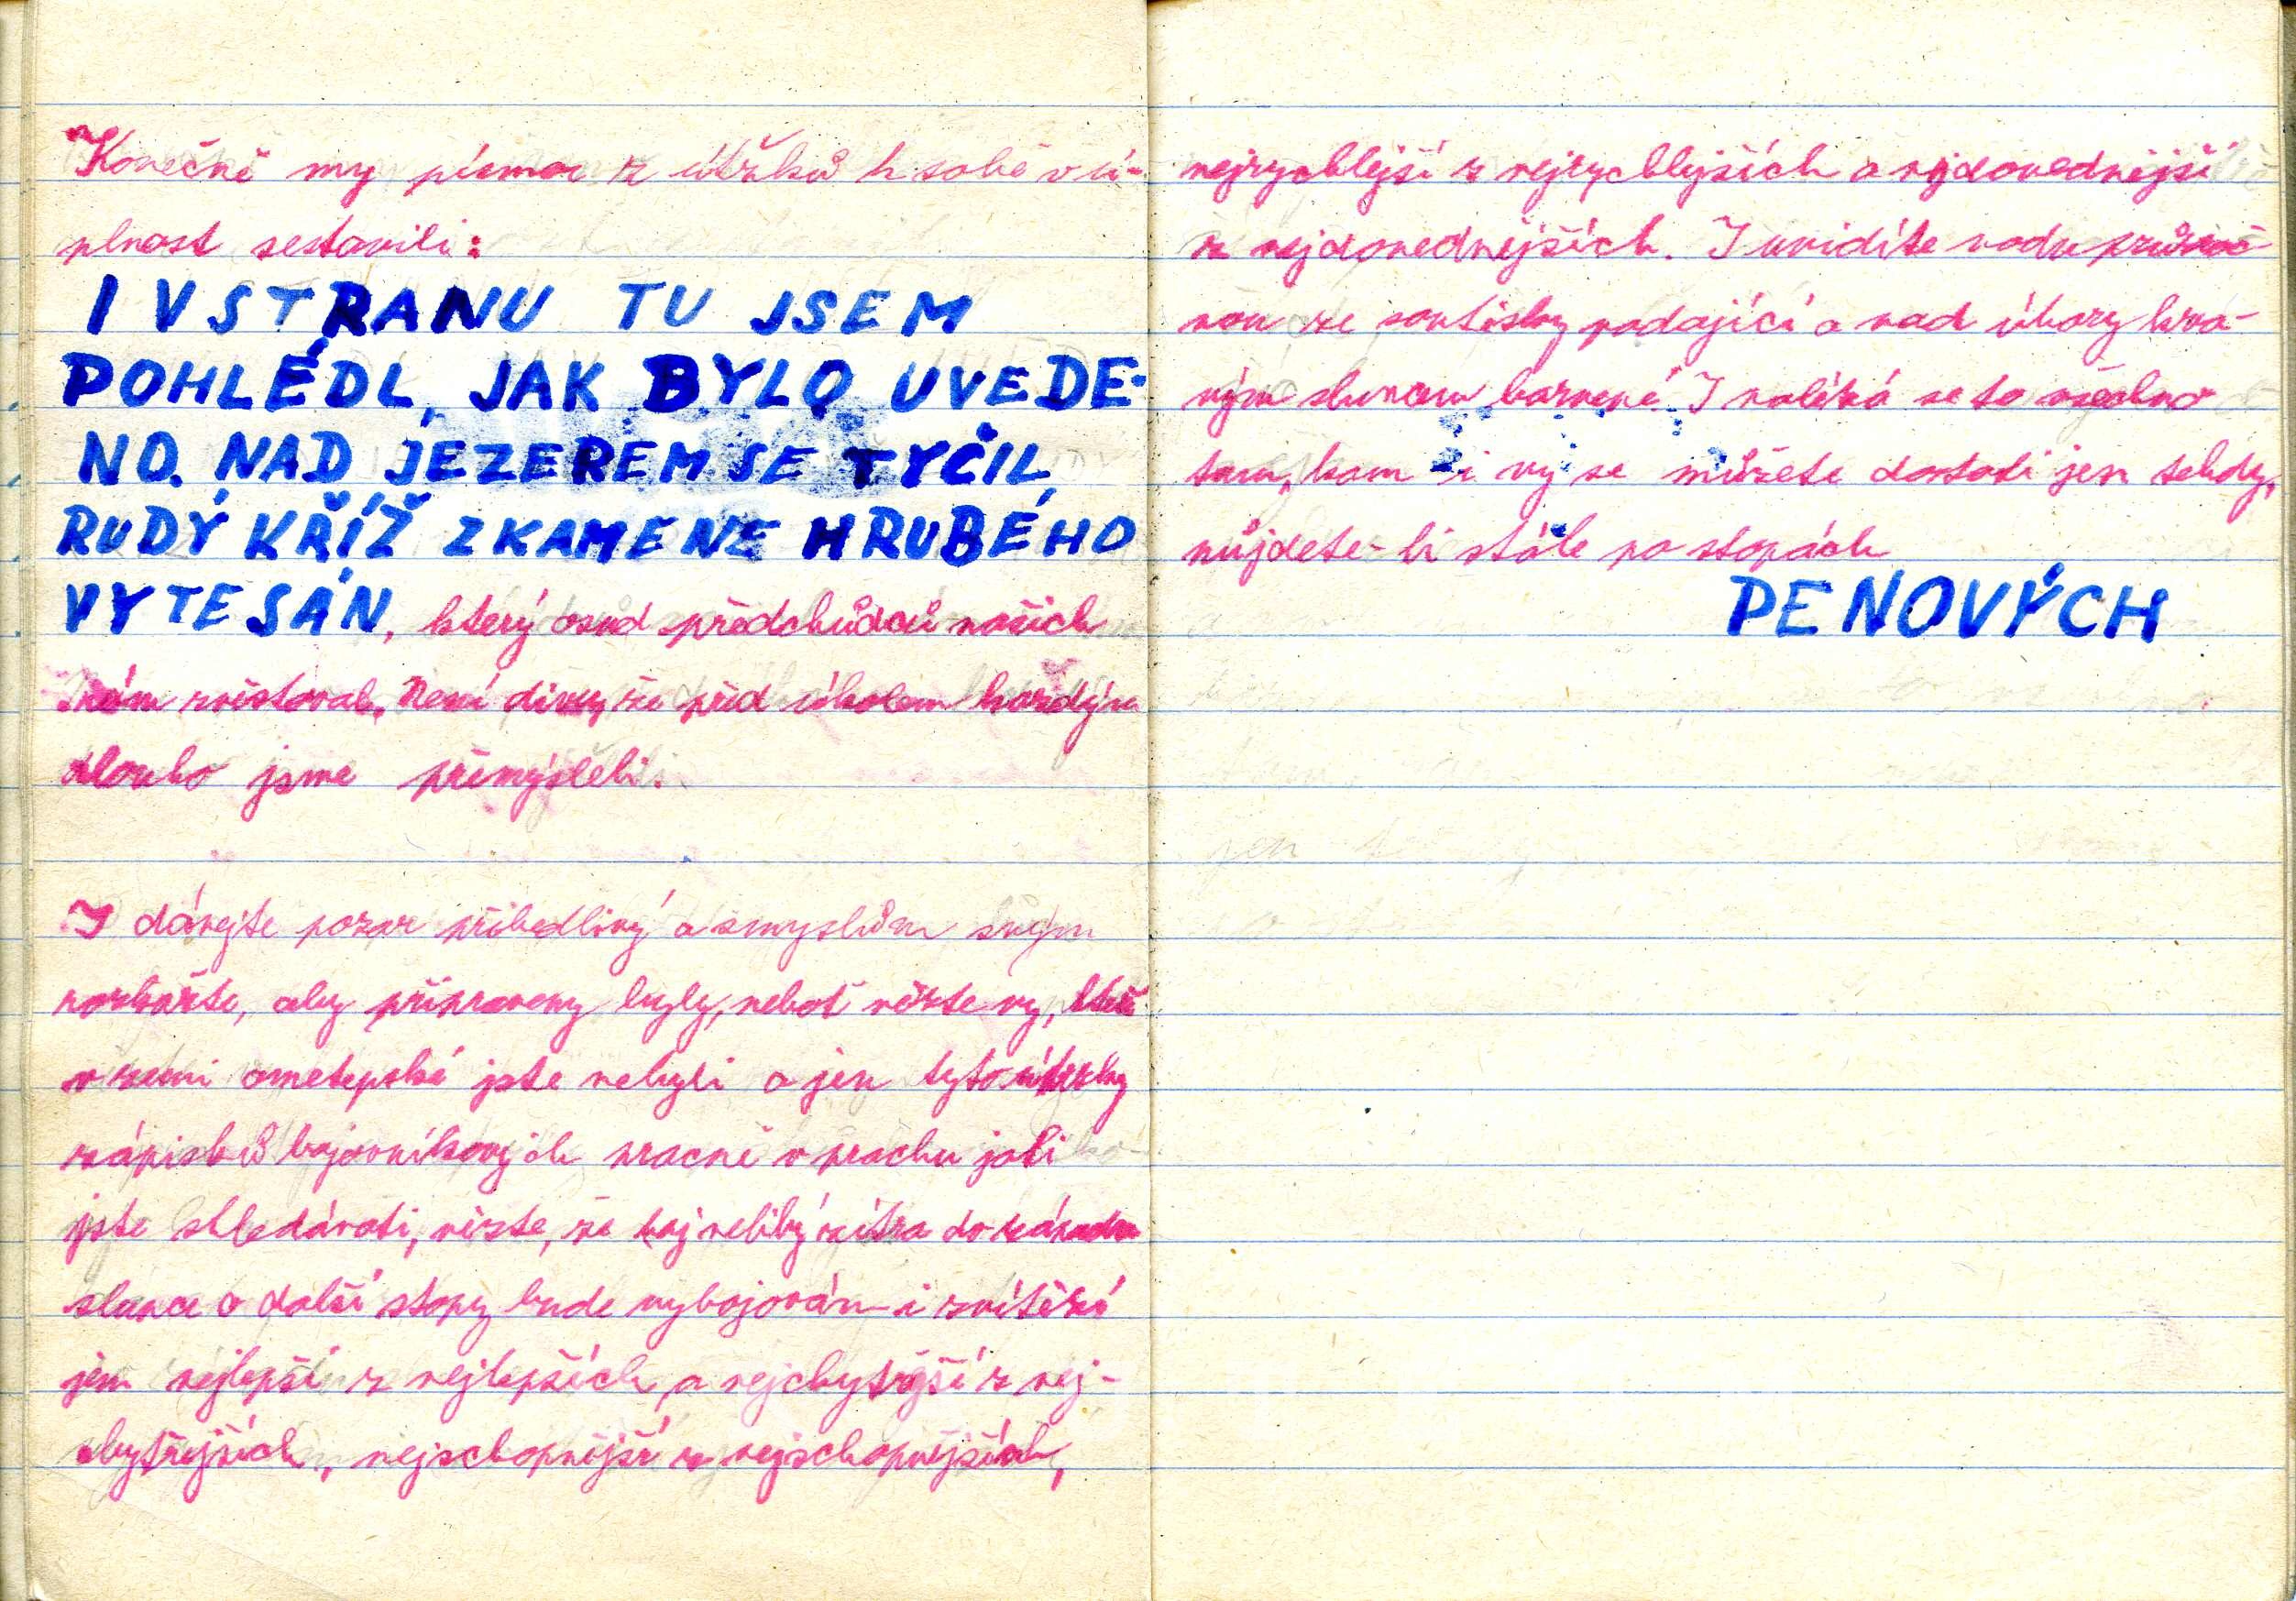 Konečně my písmo z útržků k sobě v ú-
plnost sestavili:
I V STRANU TU JSEM
POHLÉDL, JAK BYLO UVEDE-
NO. NAD JEZEREM SE TYČIL
RUDÝ KŘÍŽ Z KAMENE HRUBÉHO
VYTESÁN, který osud předchůdců našich
nám zvěstoval. Není divu, že před úkolem každým
dlouho jsme přemýšleli.
I dávejte pozor přibedlivý a smyslům svým
rozkažte, aby připraveny byly, neboť vězte vy, kteří
v zemi ometepské jste nebyli a jen tyto útržky
zápisků bojovníkových pracně v prachu jali
jste shledávati, vězte, že boj veliký zítra do západu
slunce o další stopy bude vybojován i zvítězí
jen nejlepší z nejlepších a nejchytřejší z nej-
chytřejších, nejschopnější z nejschopnějších,
nejrychlejší z nejrychlejších a nejdovednější
z nejdovednějších. I uvidíte vodu průzrač-
nou ze soutěsky padající a nad úbory krva-
vým sluncem barvené. I nalézá se to všechno
tam, kam i vy se můžete dostati jen tehdy,
půjdete-li stále po stopách
PENOVÝCH